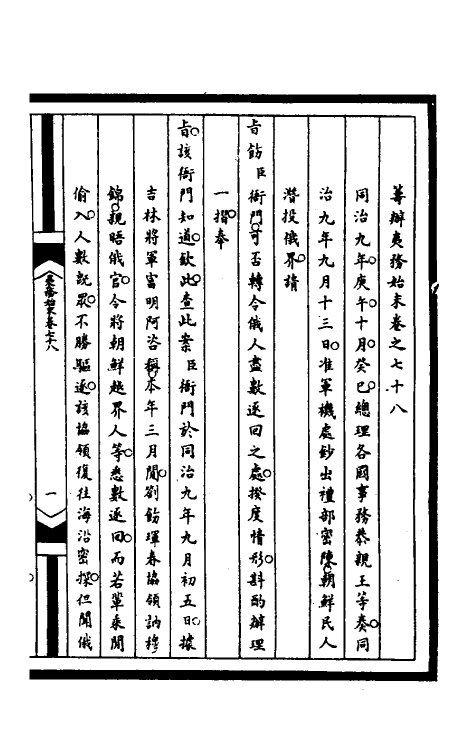 籌辦夷務始末卷之七十八
同治九年庚午十月癸巳總理各國事務恭親王等奏同
治九年九月十三日准軍機處鈔出禮部密陳朝鮮民人
潛投俄界請
旨飭臣衙門可否轉令俄人盡數逐回之處揆度情形斟酌辦理
一摺奉
旨該衙門知道欽此查此案臣衙門於同治九年九月初五日據
吉林將軍富明阿咨稱本年三月間劄飭琿春協領訥穆
錦親晤俄官令將朝鮮越界人等悉數逐回而若輩乘間
偷入人數既眾不勝驅逐該協領復往海沿密探但聞俄
夷務始末卷七十八
一